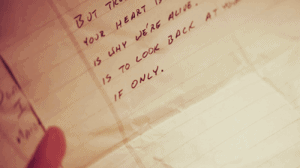 BUT
YOUR HEART
IS WHY WE'RE ALIVE.
IS TO LOOK BACK AT
IF ONLY.